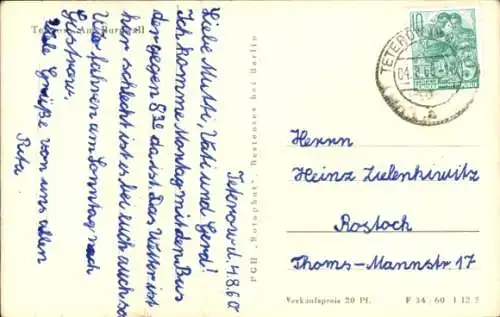 Teterow, Am Burgwall
Teterow d. 4.8.60
Liebe Mutti, Vati und Gerd!
Ich komme Montag mit dem Bus
der gegen 8 da ist. Das Wetter ist
hier schlecht ist es bei euch auch so
Wir fahren am Sonntag nach
Güstrow.
Viele Grüße von uns allen
Rita
PGH „Rotophot“, Bestensee bei Berlin
TETEROW
10
Herrn
Heinz Zielenkiwitz
Rostock
Thoms-Mannstr. 17
Verkaufspreis 20 Pf. F 34/60 1 12 5